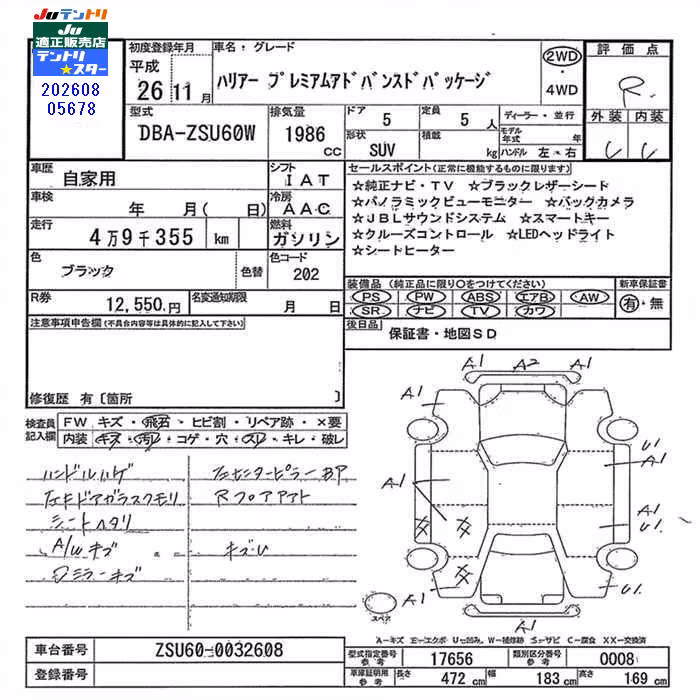 Juテントリ
Ju
適正販売店
テントリ
★スター
202608
05678
初度登録年月
平成
26 11 月
車名・グレード
ハリアー プレミアムアドバンスドパッケージ
2WD
・
4WD
評価点
R
外装 内装
型式
DBA-ZSU60W
排気量
1986
cc
ドア
5
定員
5 人
形状
SUV
積載
kg
ディーラー・並行
モデル年式
年
ハンドル 左・右
車歴
自家用
シフト
IAT
車検
年 月( 日)
冷房
AAC
走行
4万9千355 km
燃料
ガソリン
色
ブラック
色替
色コード
202
R券
12,550円
名変通知期限
月 日
セールスポイント(正常に機能するものに限ります)
☆純正ナビ・TV ☆ブラックレザーシード
☆パノラミックビューモニター ☆バックカメラ
☆JBLサウンドシステム ☆スマートキー
☆クルーズコントロール ☆LEDヘッドライト
☆シードヒーター
装備品(純正品に限り○をつけてください)
PS PW ABS エアB AW
SR ナビ TV カワ
新車保証書
有・無
後日品
保証書・地図SD
注意事項申告欄(不具合内容等は具体的に記入して下さい)
修復歴 有〔箇所 〕
検査員
記入欄
FW キズ・飛石・ヒビ割・リペア跡・×要
内装 キズ・汚レ・コゲ・穴・スレ・キレ・破レ
ハンドルハゲ
シートヘタリ
A/Wキズ
ミラーキズ
A1 A2 A1
A1 A1
U1
A1
A1
A1
U1
A1 U1
A1
スペア
A-キズ E-エクボ U-凹み W-補修跡 S-サビ C-腐食 XX-交換済
車台番号
ZSU60-0032608
登録番号
型式指定番号
参考
17656
類別区分番号
参考
0008
車庫証明用
参考
長さ 472 cm
幅 183 cm
高さ 169 cm